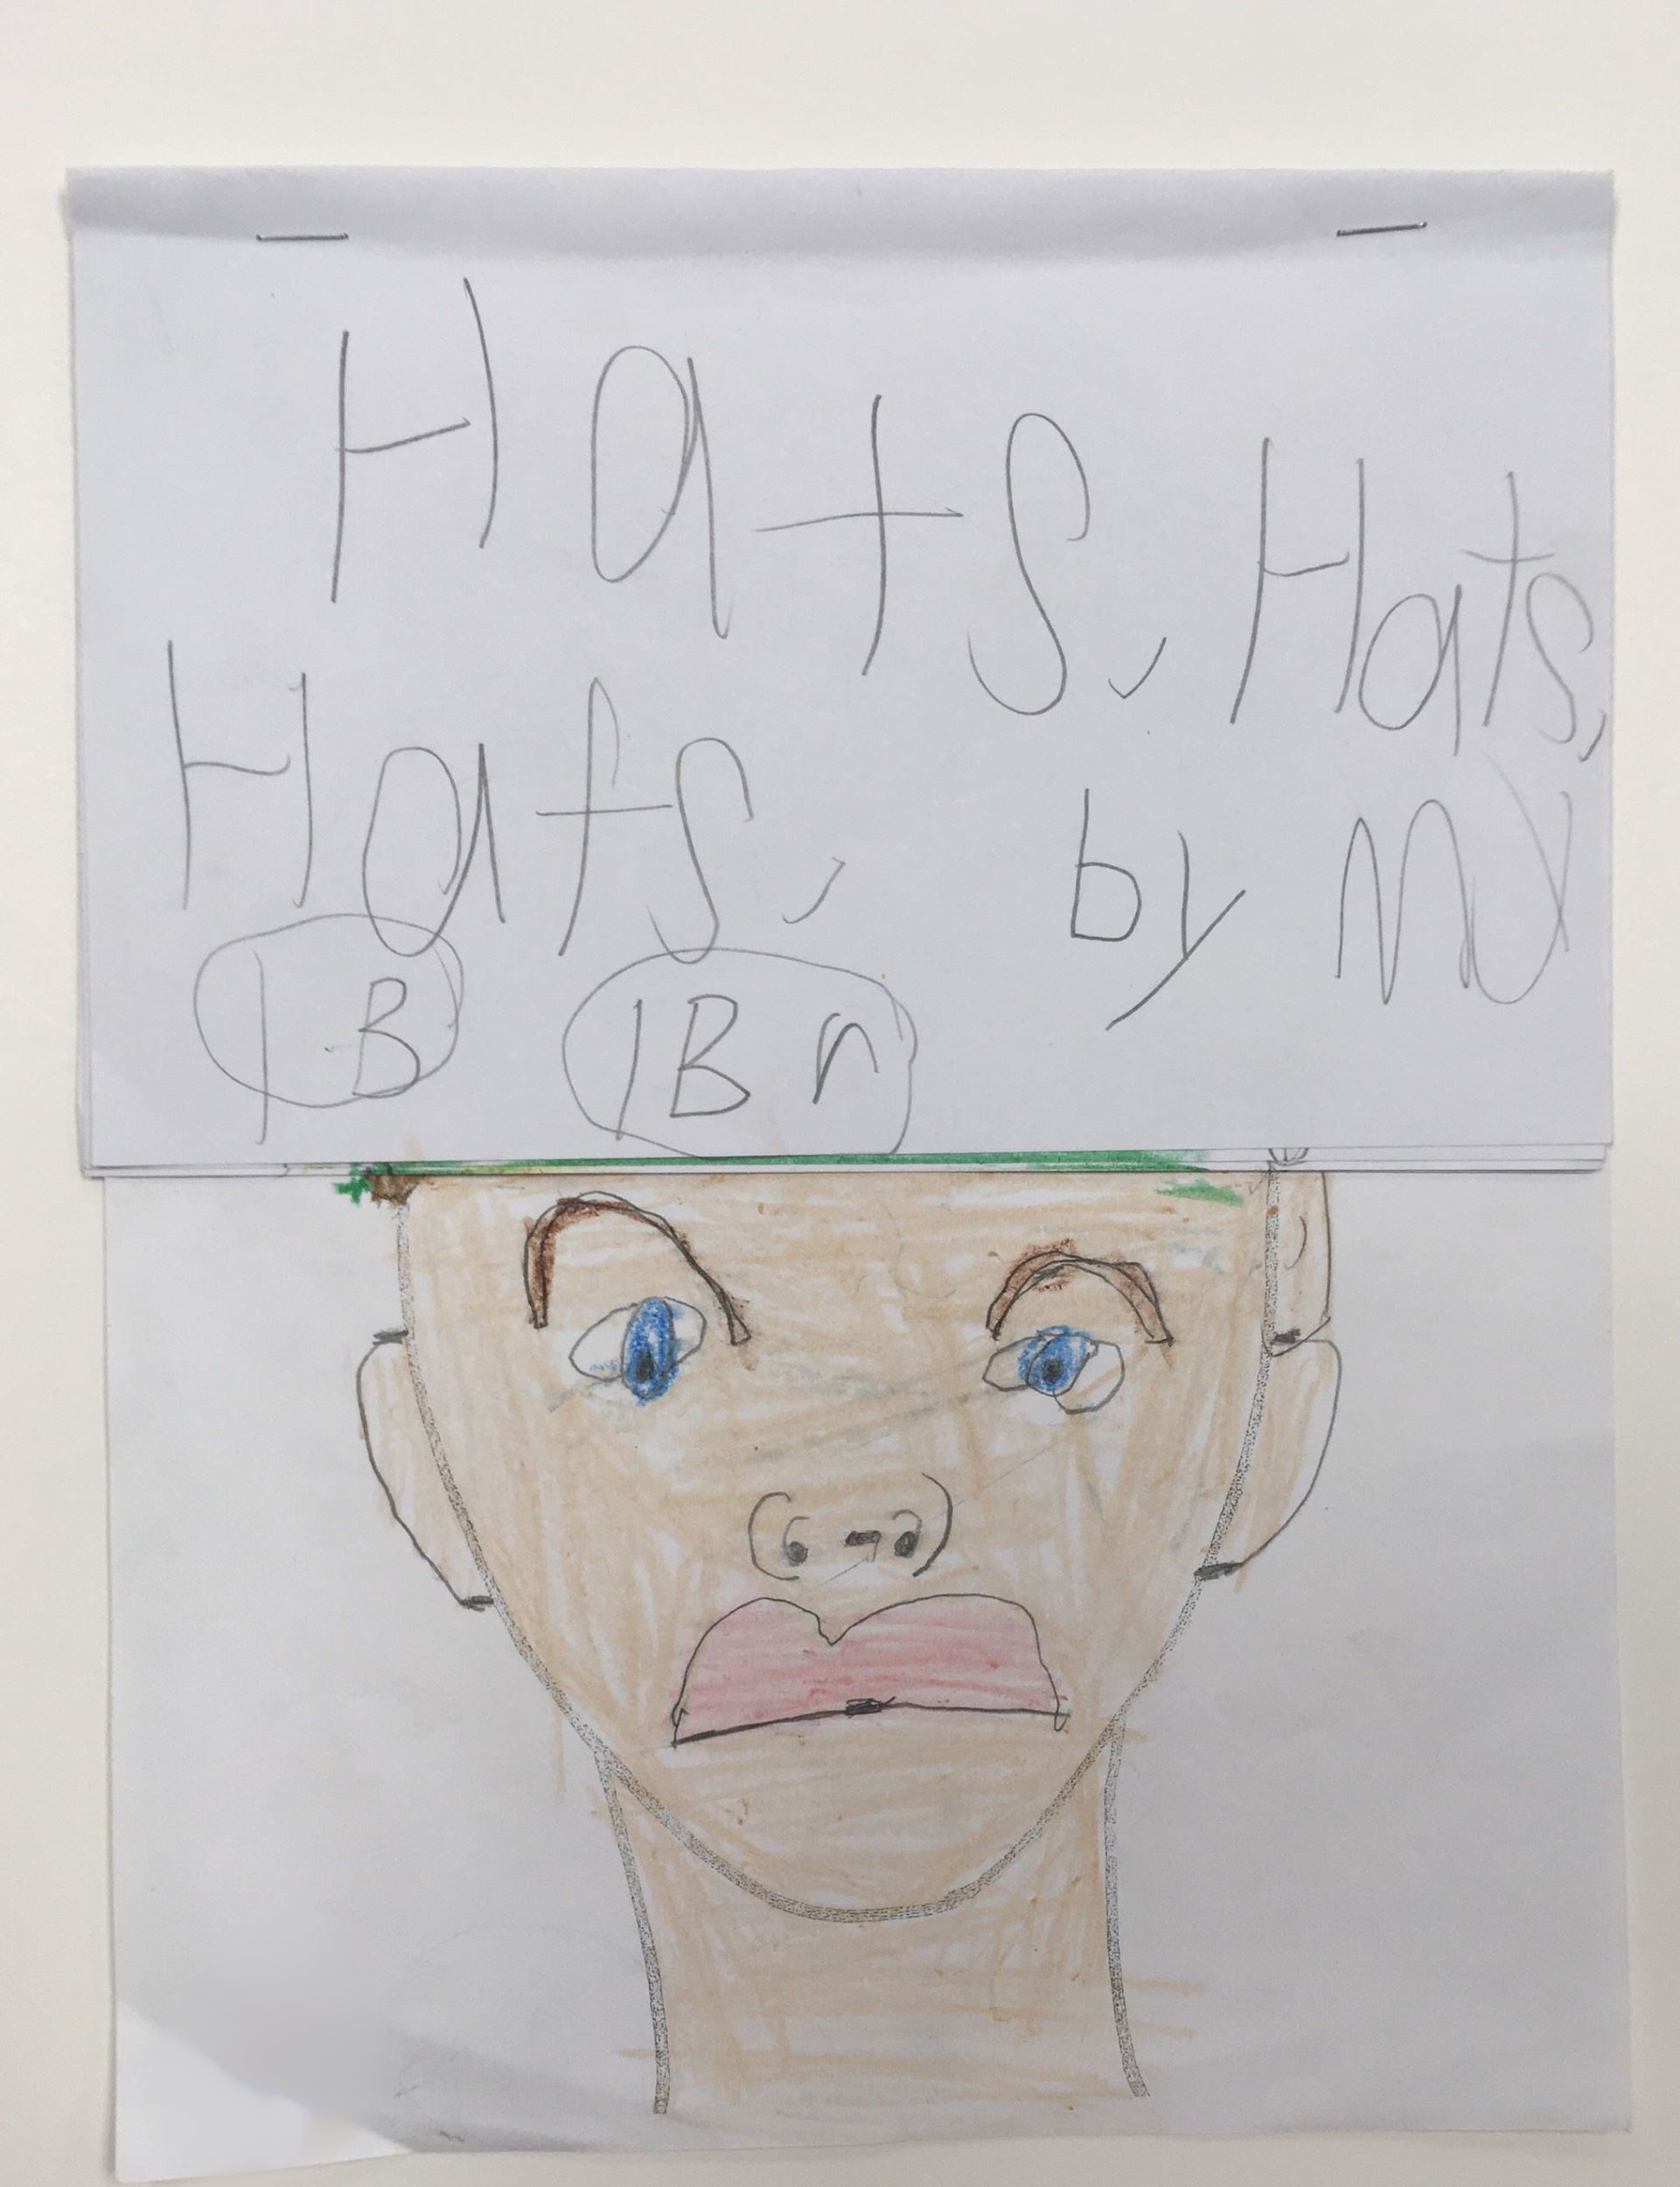 Hats, Hats,
Hats, by
1B 1Br